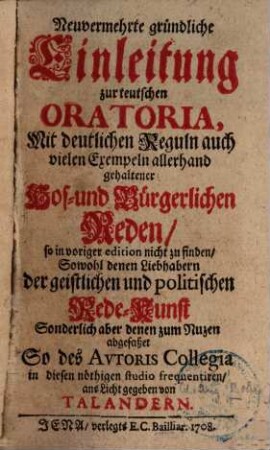 Neuvermehrte gründliche
Einleitung
zur teutschen
ORATORIA,
Mit deutlichen Reguln auch
vielen Exempeln allerhand
gehaltener
Hof-und Bürgerlichen
Reden/
so in voriger edition nicht zu finden/
Sowohl denen Liebhabern
der geistlichen und politischen
Rede-Kunst
Sonderlich aber denen zum Nuzen
abgefaßet
So des AVTORIS Collegia
in diesen nöthigen studio frequentiren/
ans Licht gegeben von
TALANDERN.
JENA/ verlegts E.C. Bailliar. 1708.